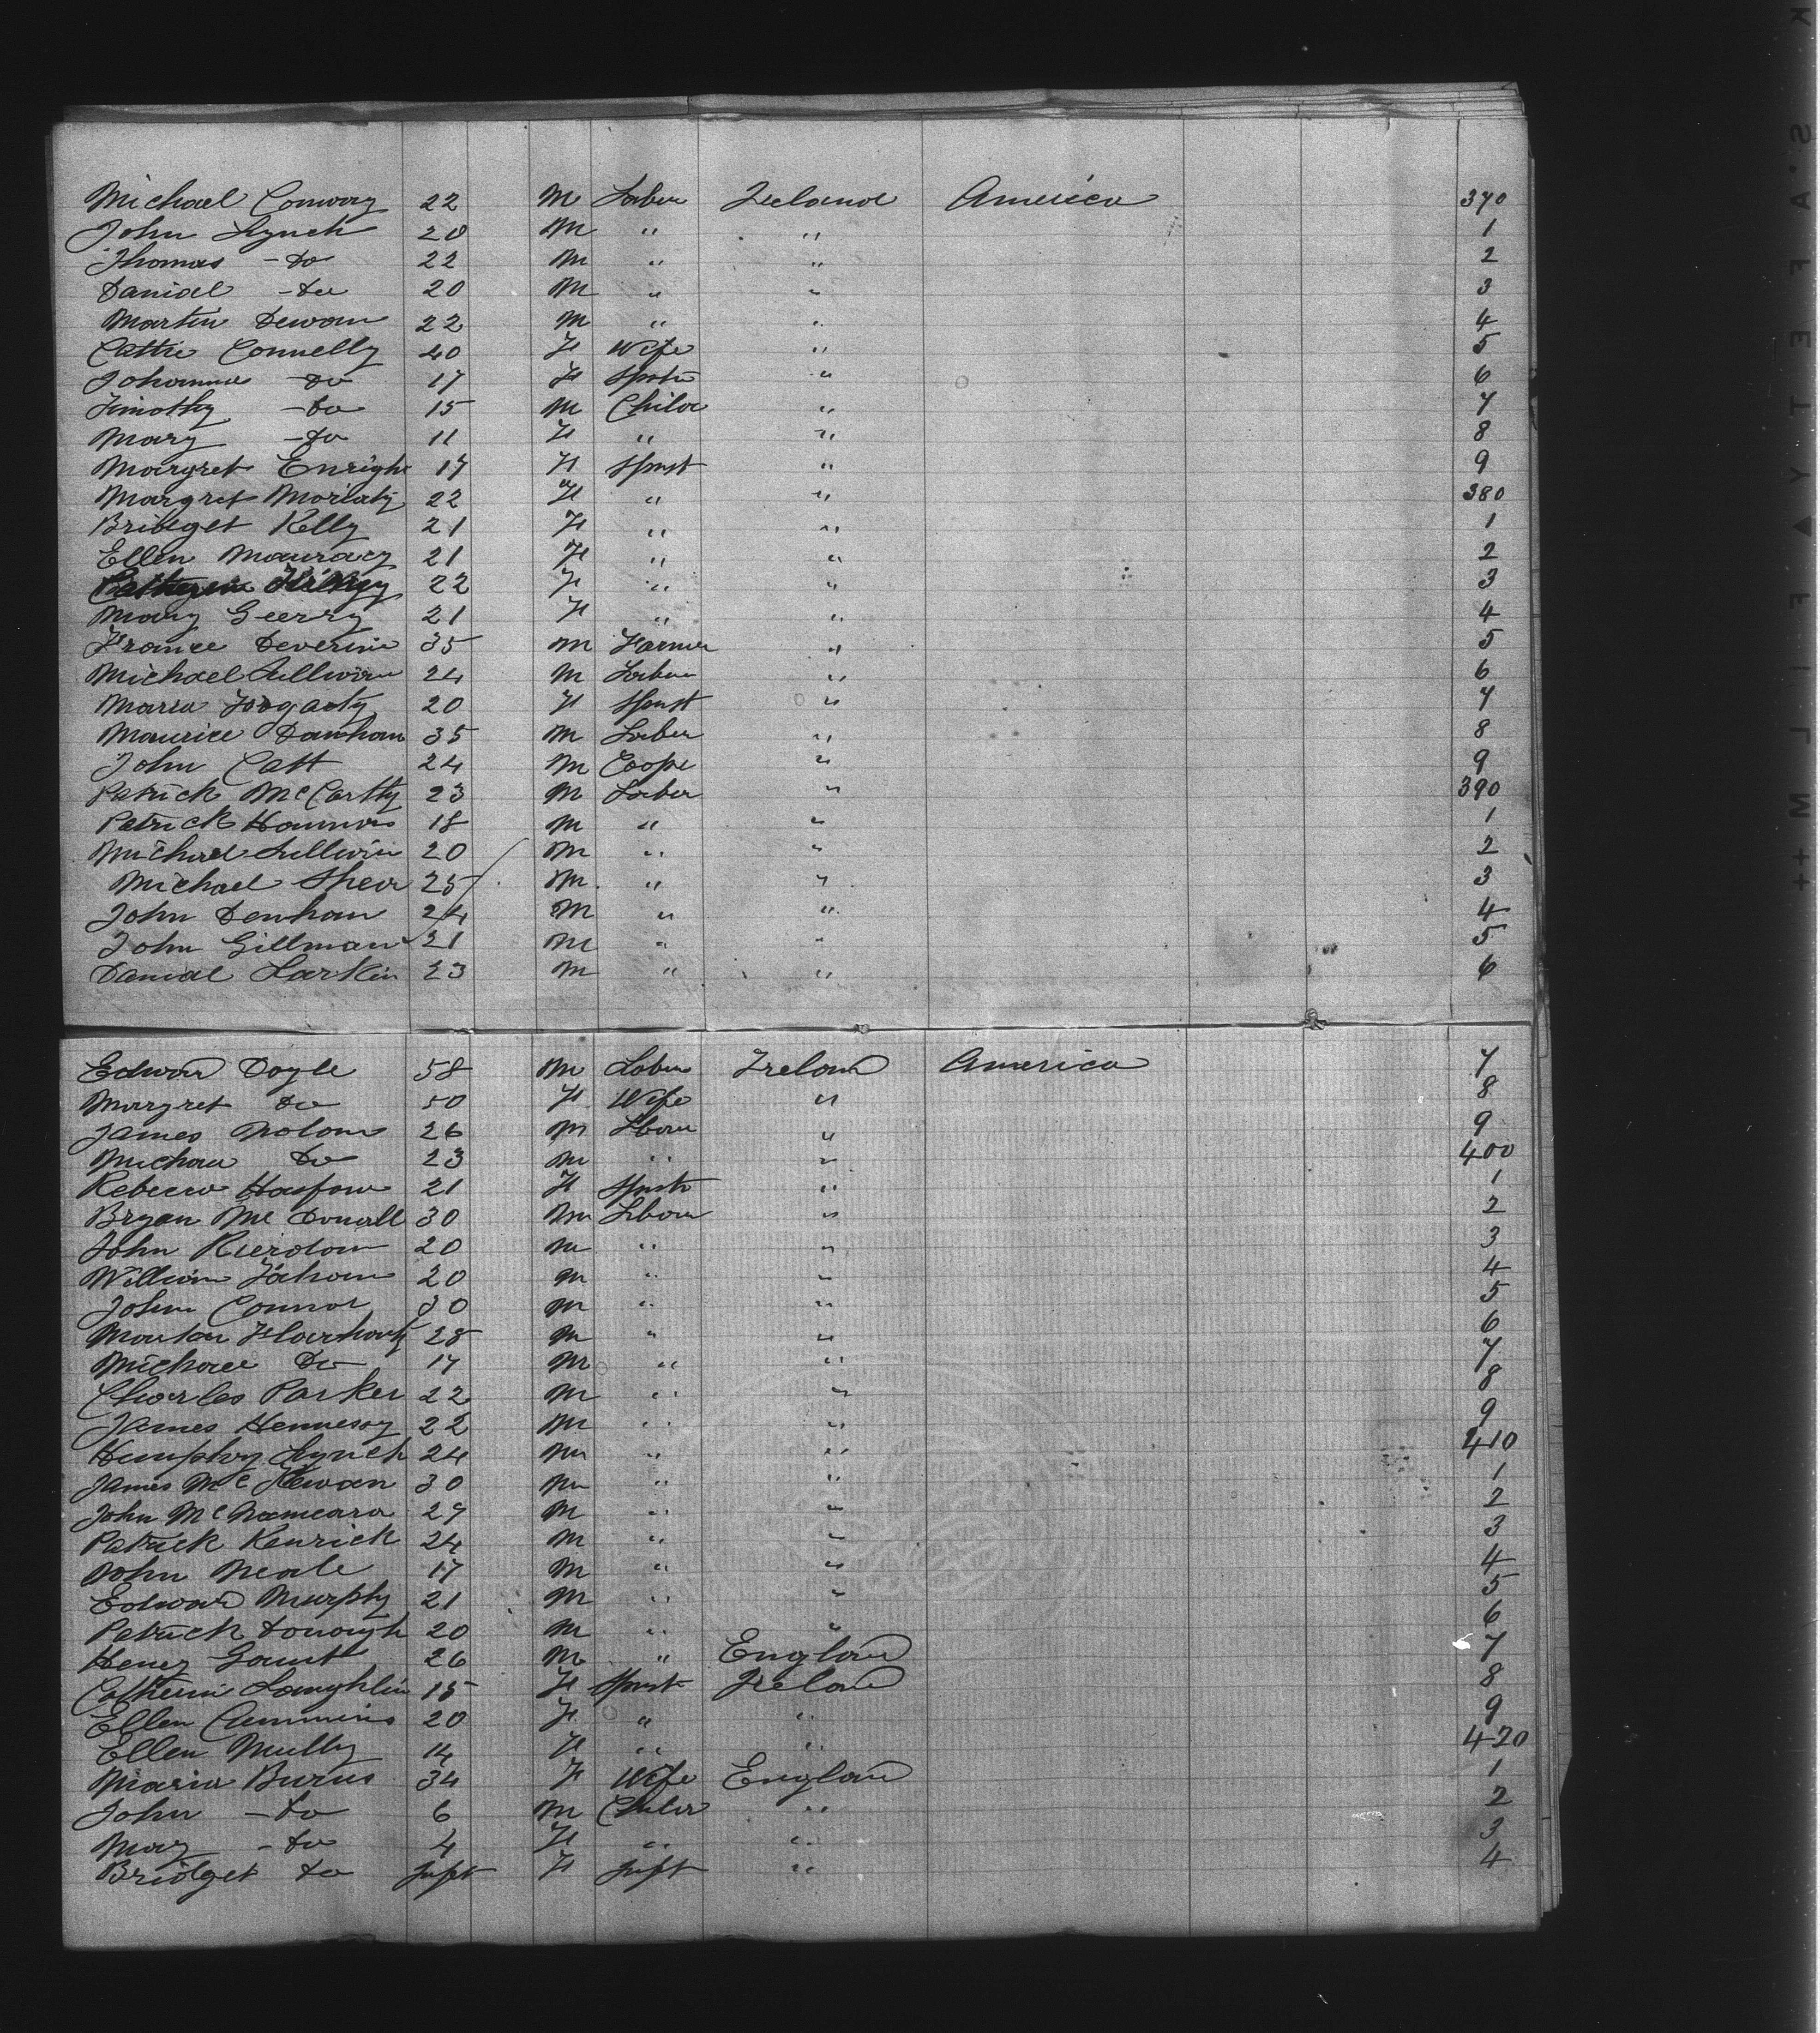 Michael Conway 22 M Laber Ireland America 370
John Lynch 20 M " " 1
Thomas - Do 22 M " " 2
Danial - Do 20 M " " 3
Martin Dewan 22 M " " 4
Cattie Connelly 40 F Wife " 5
Johanna Do 17 F Spstr " 6
Timothy - Do 15 M Child " 7
Mary - Do 11 F " " 8
Margret Enrigh 17 F Spnst " 9
Margret Moriaty 22 F " " 380
Bridget Kelly 21 F " " 1
Ellen 21 F " " 2
22 F " " 3
Mary Geerry 21 F " " 4
France Deverine 35 M Farmer " 5
Michael Sullivan 24 M Laber " 6
Maria Fogaoty 20 F Spnst " 7
Maurice 35 M Laber " 8
John Catt 24 M Coope " 9
Patrick McCartty 23 M Laber " 390
Patrick 18 M " " 1
Michael Sullivin 20 M " " 2
Michael Shea 25 M " " 3
John Denhan 24 M " " 4
John Gillman 21 M " " 5
Danial Larkin 23 M " " 6
Edward Doyle 58 M Labor Ireland America 7
Margret Do 50 F Wife " 8
James Nolan 26 M Lbour " 9
Michael Do 23 M " " 400
Rebecca 21 F Spnstr " 1
Bryan Mc Donall 30 M Lbour " 2
John Rierdan 20 M " " 3
William 20 M " " 4
John Connor 30 M " " 5
28 M " " 6
Michael Do 17 M " " 7
Charles Parker 22 M " " 8
James Hennessy 22 M " " 9
Humphry Lynch 24 M " " 410
James Mc Kewan 30 M " " 1
John McNameara 27 M " " 2
Patrick Kenrick 24 M " " 3
John Neale 17 M " " 4
Edward Murphy 21 M " " 5
Patrick Donough 20 M " " 6
Henery Gaunt 26 M " England 7
Catherin Laughlin 15 F Spnst Ireland 8
Ellen Cummins 20 F " " 9
Ellen Mully 14 F " " 420
Maria Burns 34 F Wife England 1
John - Do 6 M Child " 2
May - Do 4 F " " 3
Bridget Do Inft F Inft " 4